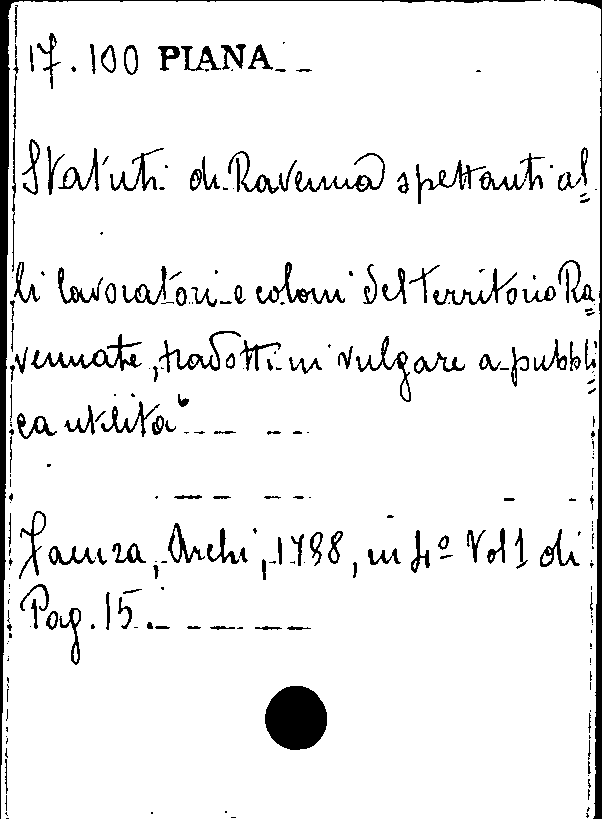 17.100 PIANA
Statuti di Ravenna spettanti al=
li lavoratori e coloni del territorio Ra=
vennate, tradotti in vulgare a pubbli=
ca utilità
Faenza, Archi, 1788, in 4º Vol 1 di
Pag. 15.